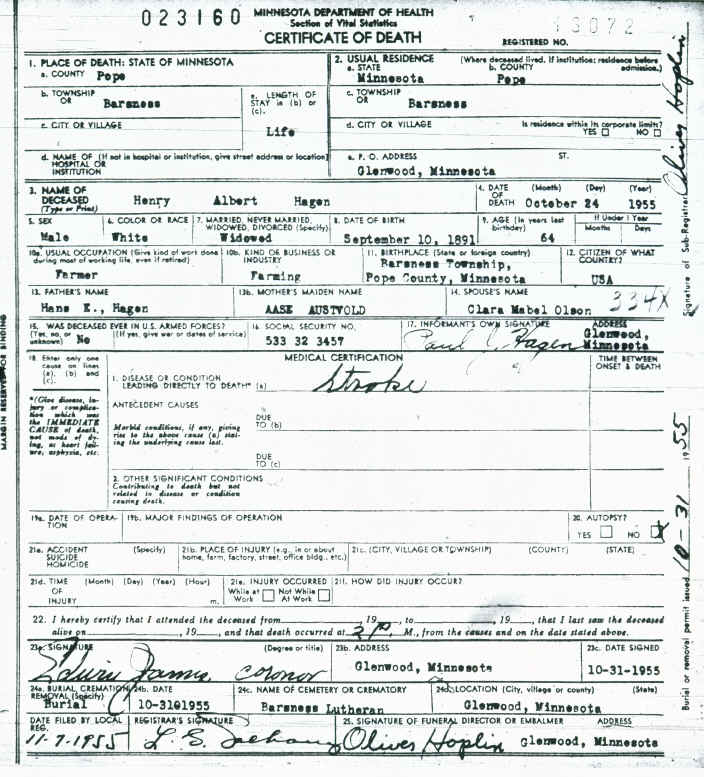 023160 MINNESOTA DEPARTMENT OF HEALTH 13072
Section of Vital Statistics
CERTIFICATE OF DEATH
REGISTERED NO.
1. PLACE OF DEATH: STATE OF MINNESOTA
a. COUNTY Pope
2. USUAL RESIDENCE (Where deceased lived. If institution: residence before admission.)
a. STATE Minnesota b. COUNTY Pope
b. TOWNSHIP OR Barsness
e. LENGTH OF STAY in (b) or (c). Life
c. TOWNSHIP OR Barsness
c. CITY OR VILLAGE
d. CITY OR VILLAGE Is residence within its corporate limits? YES NO
d. NAME OF (If not in hospital or institution, give street address or location) HOSPITAL OR INSTITUTION
e. P. O. ADDRESS ST.
Glenwood, Minnesota
3. NAME OF DECEASED (Type or Print) Henry Albert Hagen
4. DATE OF DEATH (Month) (Day) (Year) October 24 1955
5. SEX Male
6. COLOR OR RACE White
7. MARRIED, NEVER MARRIED, WIDOWED, DIVORCED (Specify) Widowed
8. DATE OF BIRTH September 10, 1891
9. AGE (In years last birthday) 64
If Under 1 Year Months Days
10a. USUAL OCCUPATION (Give kind of work done during most of working life, even if retired) Farmer
10b. KIND OF BUSINESS OR INDUSTRY Farming
11. BIRTHPLACE (State or foreign country) Barsness Township, Pope County, Minnesota
12. CITIZEN OF WHAT COUNTRY? USA
13. FATHER'S NAME Hans E., Hagen
13b. MOTHER'S MAIDEN NAME AASE AUSTVOLD
14. SPOUSE'S NAME Clara Mabel Olson
334X
15. WAS DECEASED EVER IN U.S. ARMED FORCES? (Yes, no, or unknown) No (If yes, give war or dates of service)
16. SOCIAL SECURITY NO. 533 32 3457
17. INFORMANT'S OWN SIGNATURE Paul Hagen
ADDRESS Glenwood, Minnesota
18. Enter only one cause on lines (a), (b) and (c).
MEDICAL CERTIFICATION
TIME BETWEEN ONSET & DEATH
1. DISEASE OR CONDITION LEADING DIRECTLY TO DEATH* (a) Stroke
*(Give disease, injury or complication which was the IMMEDIATE CAUSE of death, not mode of dying, as heart failure, asphyxia, etc.
ANTECEDENT CAUSES
Morbid conditions, if any, giving rise to the above cause (a) stating the underlying cause last.
DUE TO (b)
DUE TO (c)
2. OTHER SIGNIFICANT CONDITIONS
Contributing to death but not related to disease or condition causing death.
19a. DATE OF OPERATION
19b. MAJOR FINDINGS OF OPERATION
20. AUTOPSY? YES NO X
21a. ACCIDENT SUICIDE HOMICIDE (Specify)
21b. PLACE OF INJURY (e.g., in or about home, farm, factory, street, office bldg., etc.)
21c. (CITY, VILLAGE OR TOWNSHIP) (COUNTY) (STATE)
21d. TIME OF INJURY (Month) (Day) (Year) (Hour) m.
21e. INJURY OCCURRED While at Work Not While At Work
21f. HOW DID INJURY OCCUR?
22. I hereby certify that I attended the deceased from , 19 , to , 19 , that I last saw the deceased
alive on , 19 , and that death occurred at 2 P. M., from the causes and on the date stated above.
23a. SIGNATURE (Degree or title) coronor
23b. ADDRESS Glenwood, Minnesota
23c. DATE SIGNED 10-31-1955
24a. BURIAL, CREMATION REMOVAL (Specify) Burial
24b. DATE 10-31-1955
24c. NAME OF CEMETERY OR CREMATORY Barsness Lutheran
24d. LOCATION (City, village or county) (State) Glenwood, Minnesota
DATE FILED BY LOCAL REG. 11-7-1955
REGISTRAR'S SIGNATURE
25. SIGNATURE OF FUNERAL DIRECTOR OR EMBALMER Oliver Hoplin
ADDRESS Glenwood, Minnesota
MARGIN RESERVED FOR BINDING
Signature of Sub-Registrar Oliver Hoplin
Burial or removal permit issued 10-31 1955